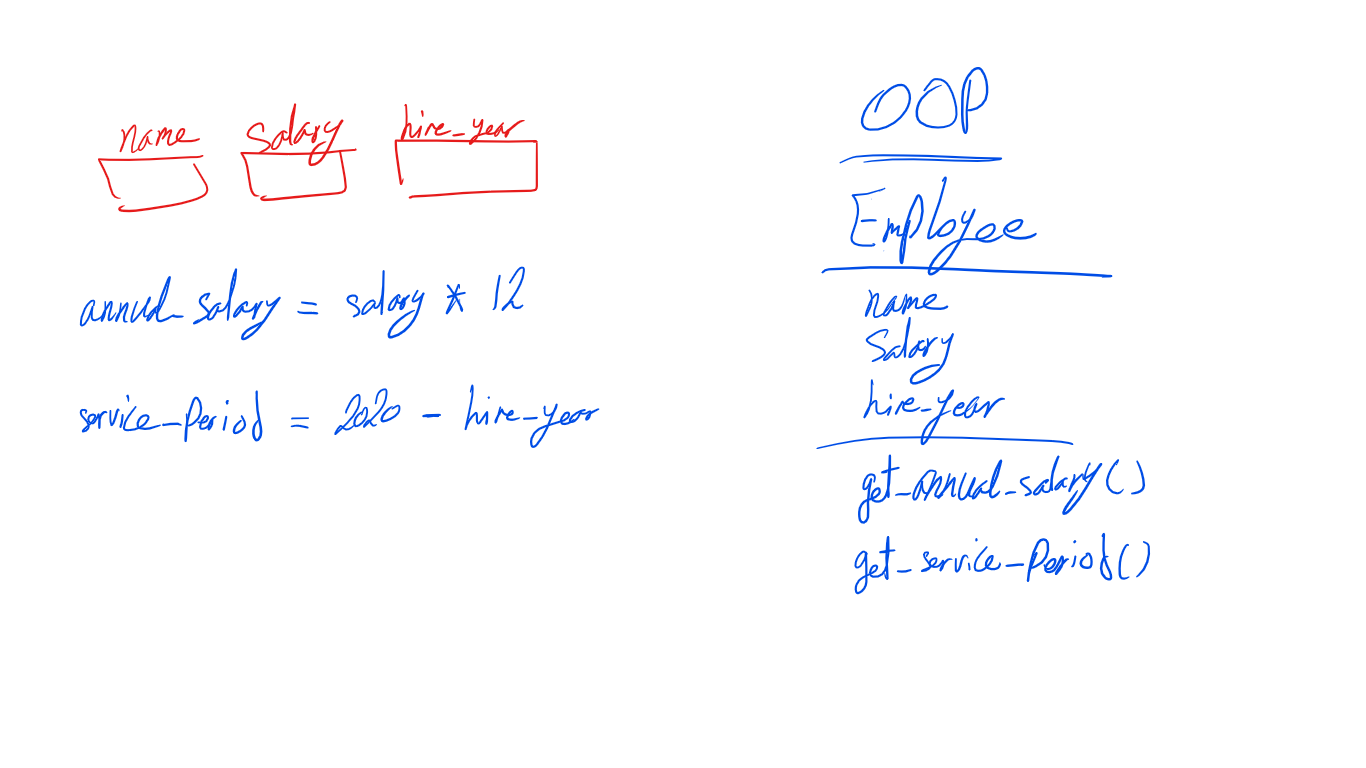 name salary hire_year
annual_salary = salary * 12
service_period = 2020 - hire_year
OOP
Employee
name
salary
hire_year
get_annual_salary()
get_service_period()